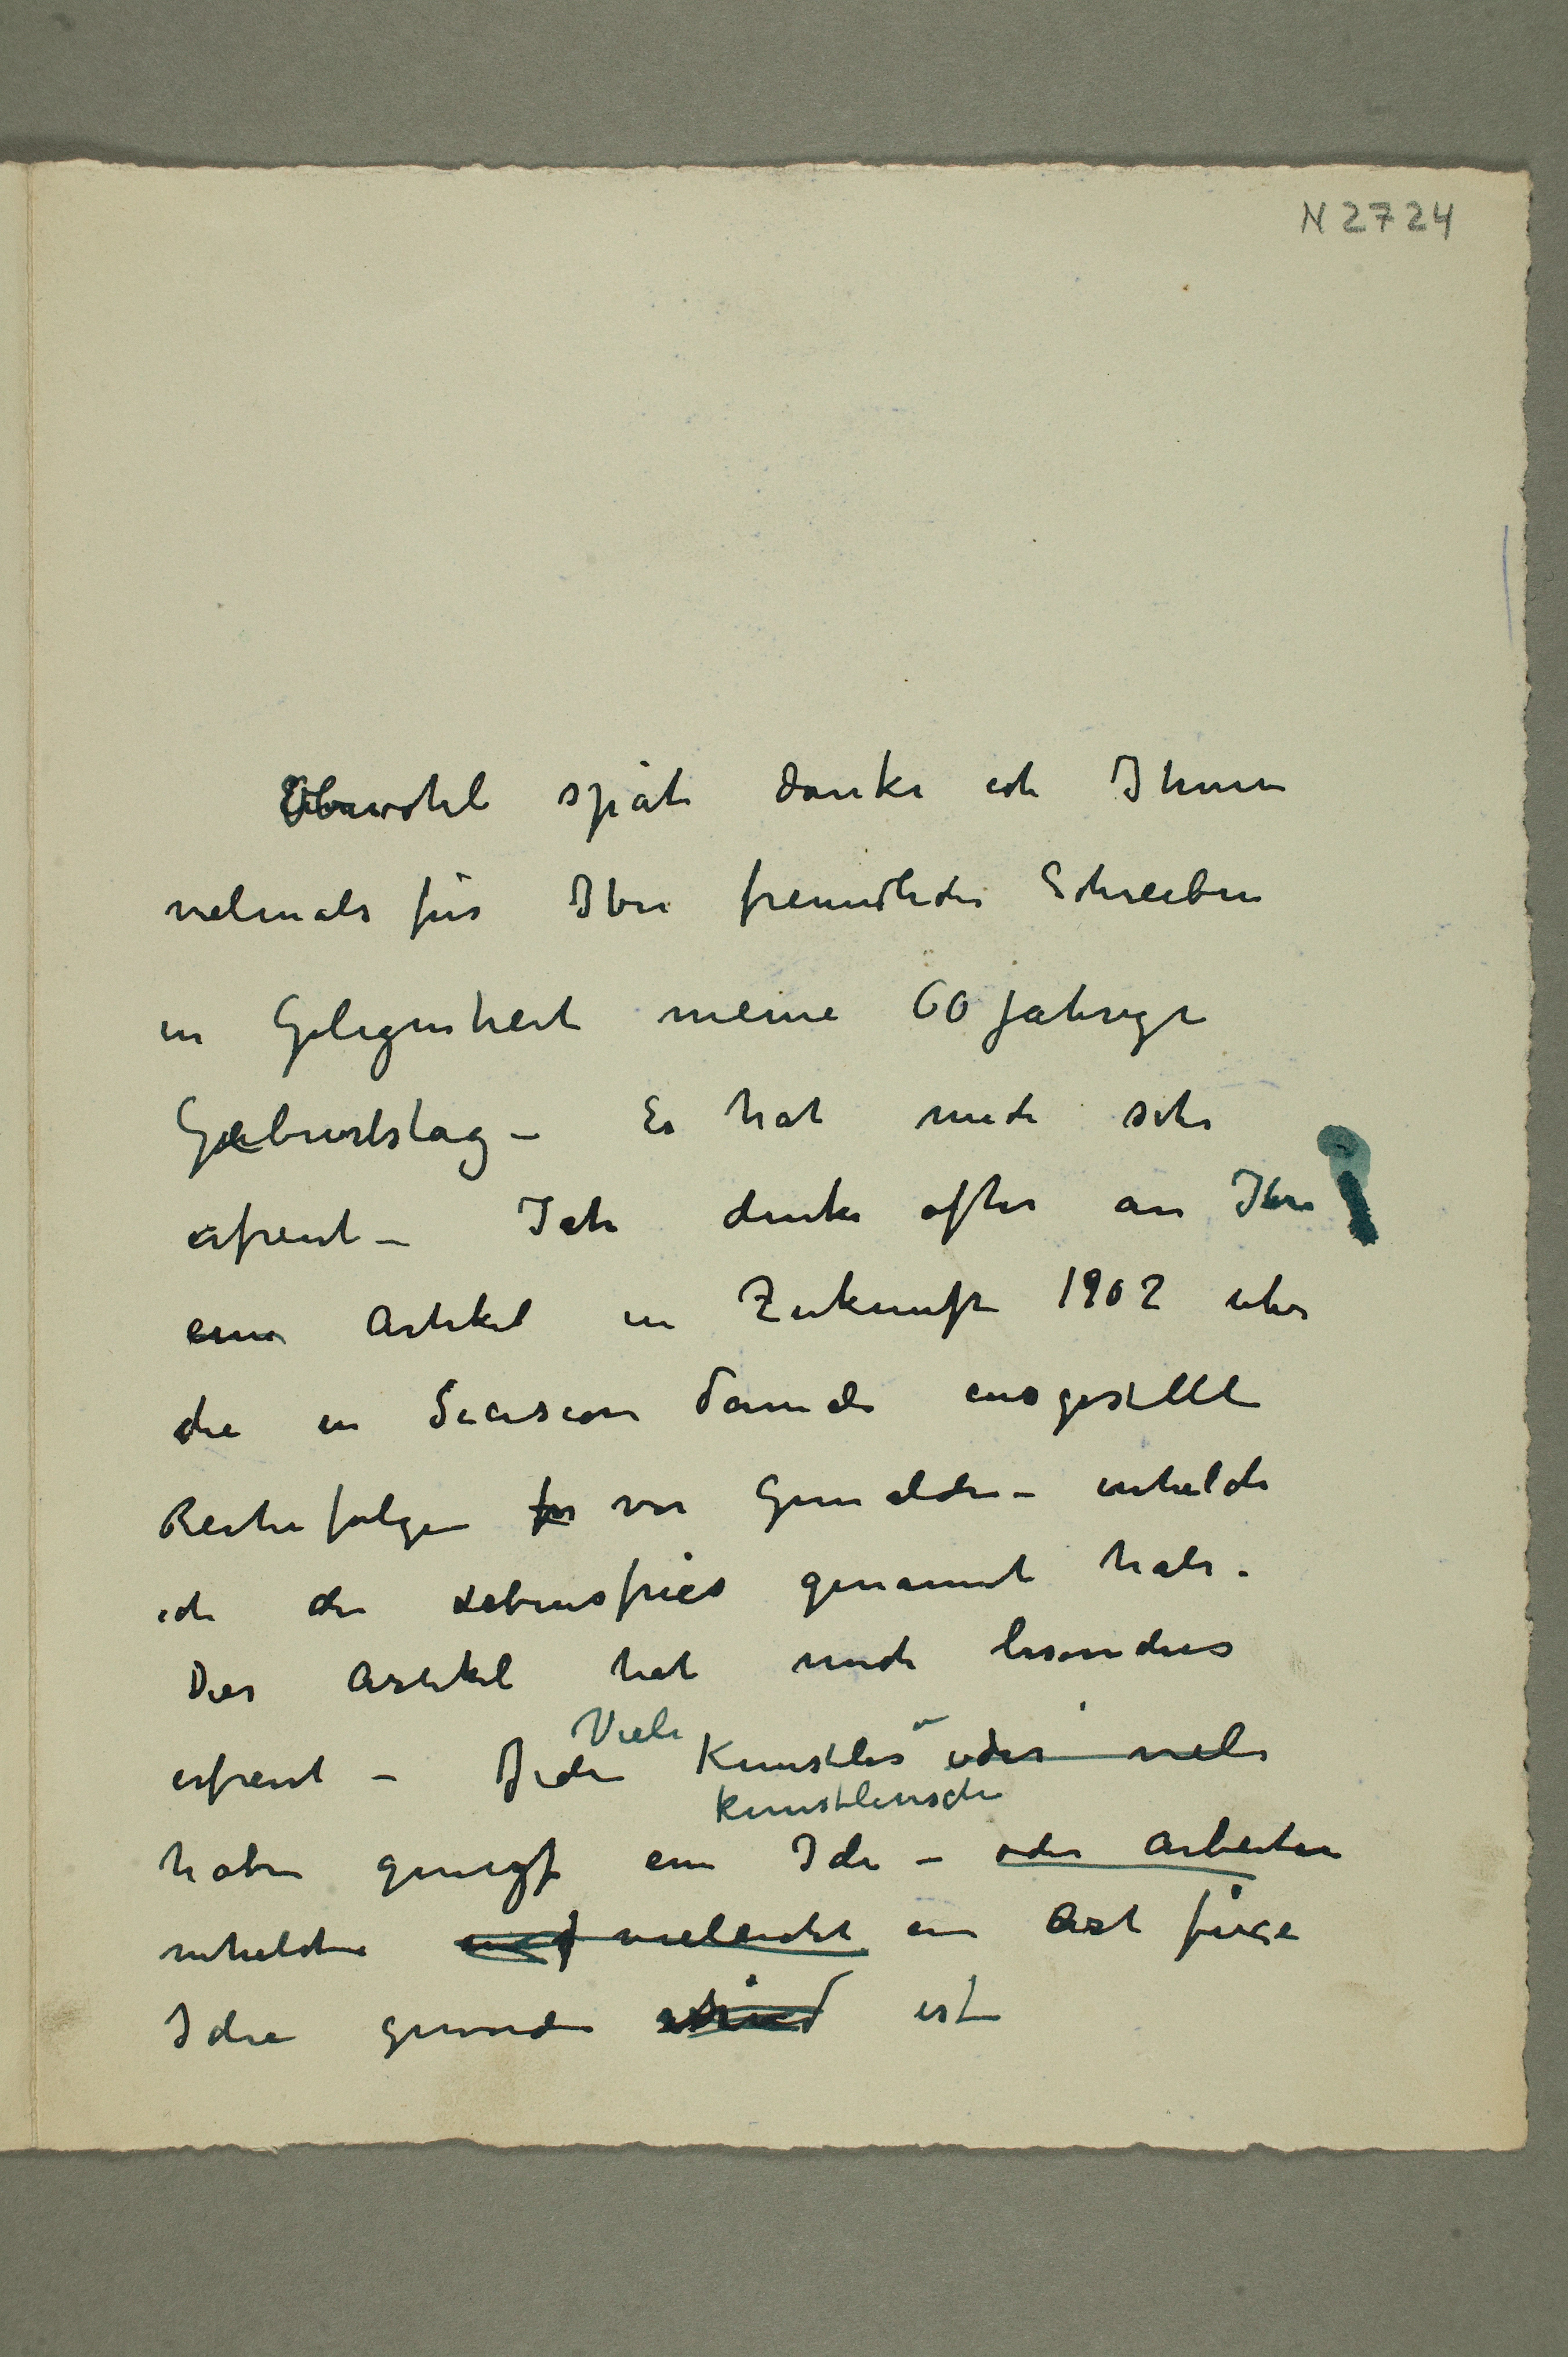 N 2724
Obwohl späte danke ich Ihnen
vielmals für Ihre freundliche Schreiben
in Gelegenheit meine 60 jahrige
Geburtstag – Es hat mich sehr
erfreut – Ich denke ofter an Ihre
eine Artikel in Zukunft 1902 uber
die in Secission damals ausgestellte
Reihefolgen for von Gemälden – welche
ich die Lebensfries genannt habe.
Der Artikel hat mich besonders
erfreut – Jeder Viele Kunstler oder viele
kunstlerische
haben geneigt eine Ide – oder arbeiten
welche und vieleicht eine Art fixe
Idee geworden ist